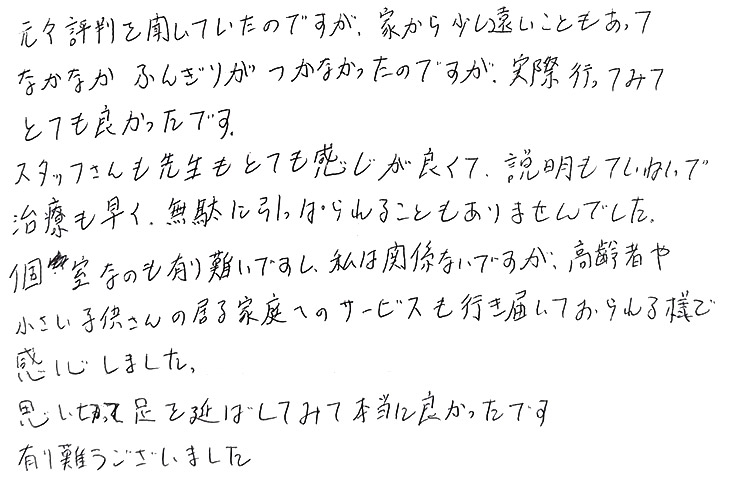 元々評判を聞いていたのですが、家から少し遠いこともあって
なかなか ふんぎりが つかなかったのですが、実際行ってみて
とても良かったです。
スタッフさんも先生もとても感じが良くて、説明もていねいで
治療も早く、無駄に引っぱられることもありませんでした。
個室なのも有り難いですし、私は関係ないですが、高齢者や
小さい子供さんの居る家庭へのサービスも行き届いておられる様で
感じしました。
思い切って足を延ばしてみて本当に良かったです
有り難うございました